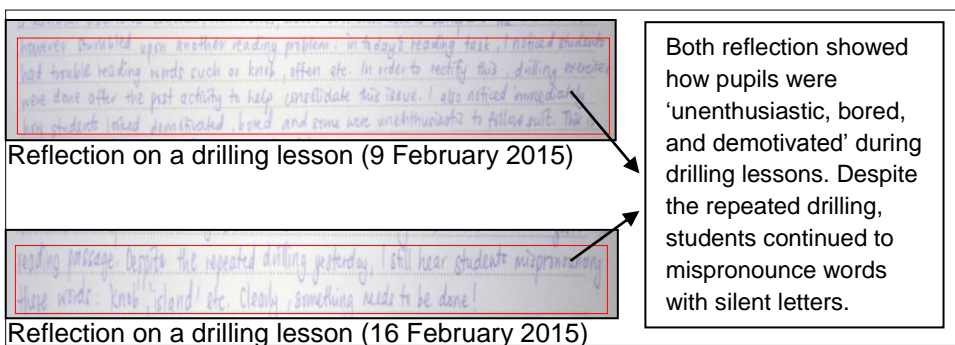 however stumbled upon another reading problem. In today's reading task, I noticed students
had trouble reading words such as knob, often etc. In order to rectify this, drilling exercises
were done after the post activity to help consolidate this issue. I also noticed immediately
how students looked demotivated, bored and some were unenthusiastic to follow suit. This
Reflection on a drilling lesson (9 February 2015)
reading passage. Despite the repeated drilling yesterday, I still hear students mispronouncing
these words: 'knob', 'island' etc. Clearly, something needs to be done!
Reflection on a drilling lesson (16 February 2015)
Both reflection showed
how pupils were
‘unenthusiastic, bored,
and demotivated’ during
drilling lessons. Despite
the repeated drilling,
students continued to
mispronounce words
with silent letters.